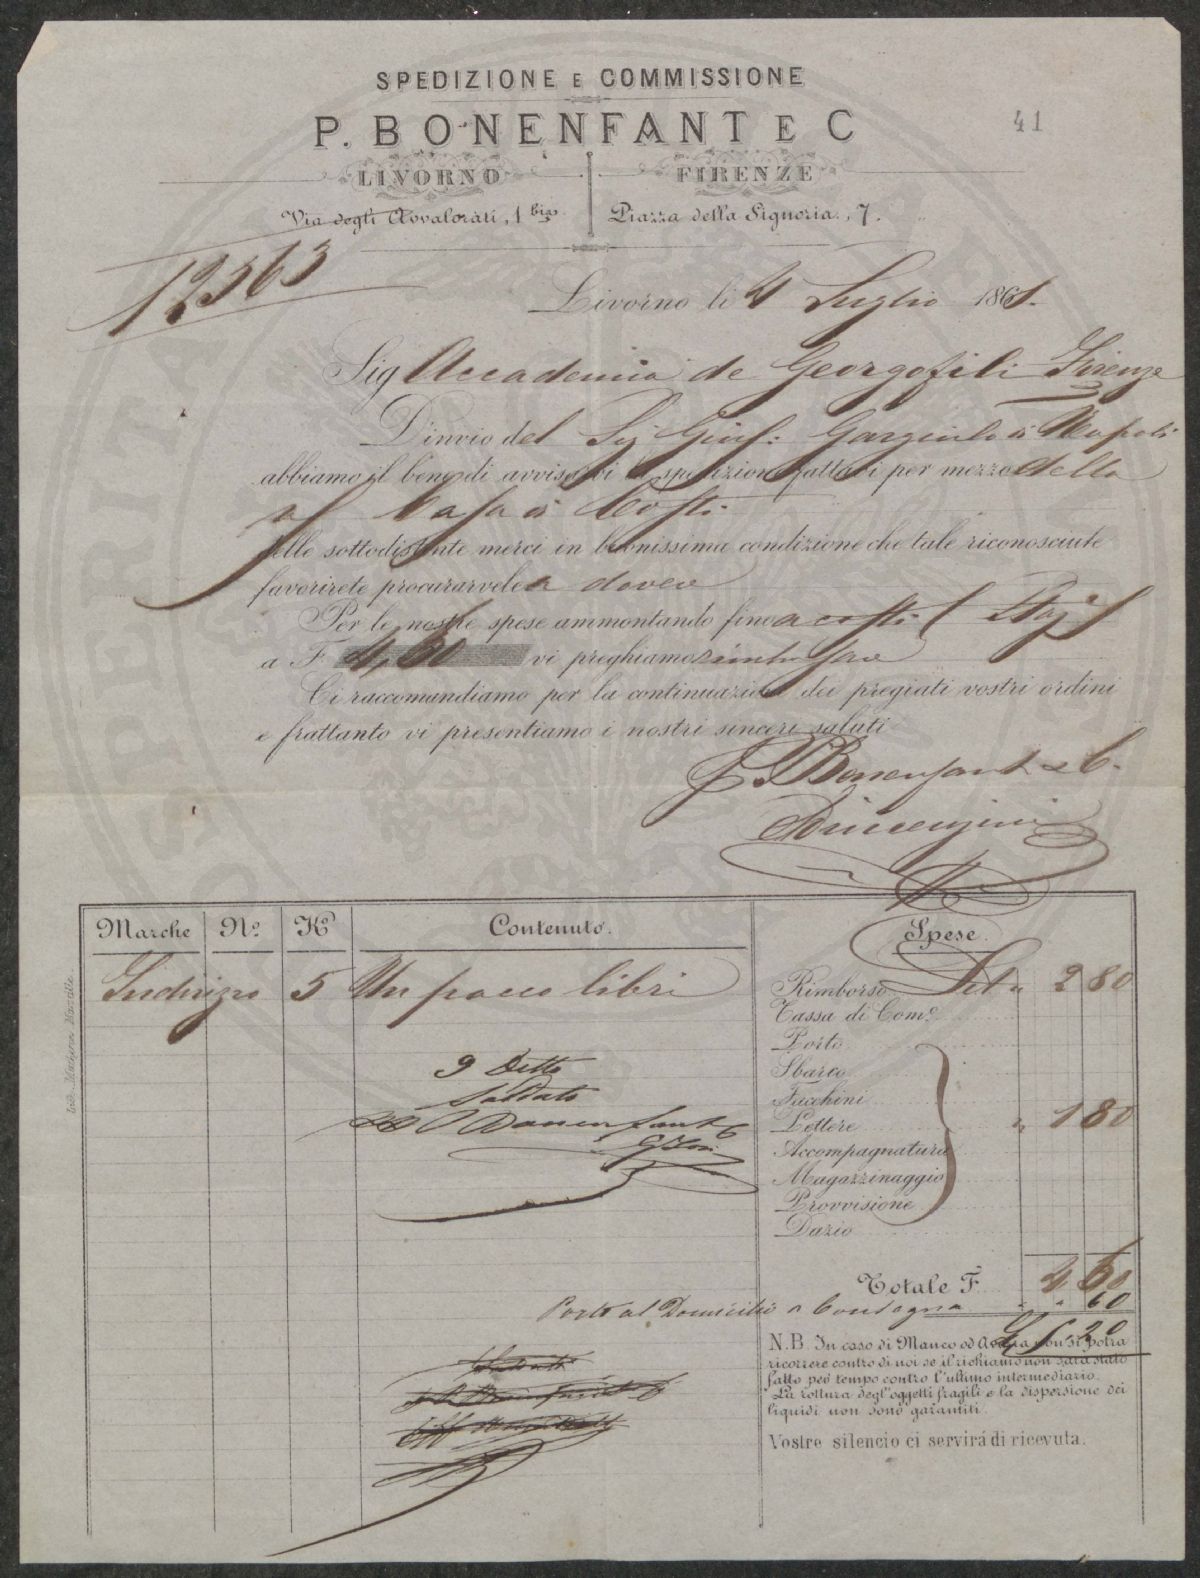 SPEDIZIONE E COMMISSIONE
P. BONENFANT E C
41
LIVORNO FIRENZE
Via degli Avvalorati, 1 bis. Piazza della Signoria., 7.
12363
Livorno li 4 Luglio 1861.
Sig Accademia de Georgofili Firenze
D'invio del Sig Gius: Gargiulo di Napoli
abbiamo il bene di avvisarvi la spedizione fattavi per mezzo della
Casa di Costì
delle sottodistinte merci in buonissima condizione che tale riconosciute
favorirete procurarvele a dovere
Per le nostre spese ammontando fino a costì
a F 4,60 vi preghiamo rimborsare
Ci raccomandiamo per la continuazione dei pregiati vostri ordini
e frattanto vi presentiamo i nostri sinceri saluti
P. Bonenfant e C.
Marche Nº K Contenuto. Spese.
Indirizzo 5 Un pacco libri
Rimborso " 2 80
Tassa di Comᵉ
Porto
Sbarco
Facchini
Lettere " 1 80
Accompagnatura
Magazzinaggio
Provvisione
Dazio
9 Detto
Saldato
P Bonenfant C
Totale F 4 60
Porto al Domicilio e Consegna " " 60
5 20
N.B. In caso di Manco od Avaria non si potra
ricorrere contro di noi se il richiamo non sara stato
fatto però tempo contro l'ultimo intermediario.
La rottura degl'oggetti fragili e la dispersione dei
liquidi non sono garantiti.
Vostre silencio ci servirá di ricevuta.